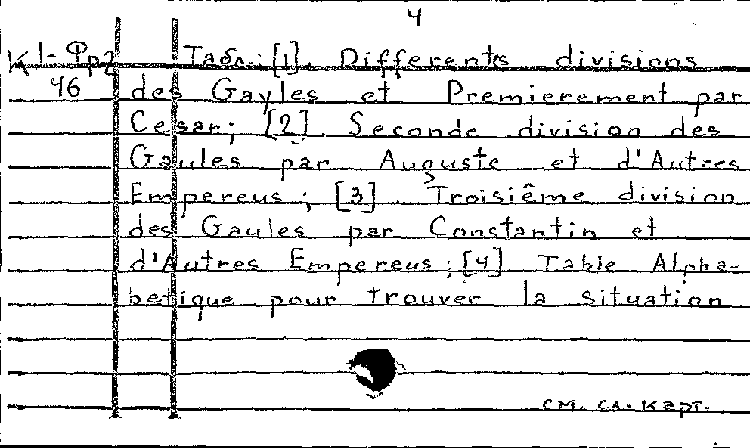 4
К 1-Фр2 Табл.: [1]. Differents divisions
46 des Gayles et Premierement par
Cesar; [2] Seconde division des
Gaules par Auguste et d'Autres
Empereus; [3] Troisième division
des Gaules par Constantin et
d'Autres Empereus; [4] Table Alpha-
betique pour trouver la situation
см. сл. карт.